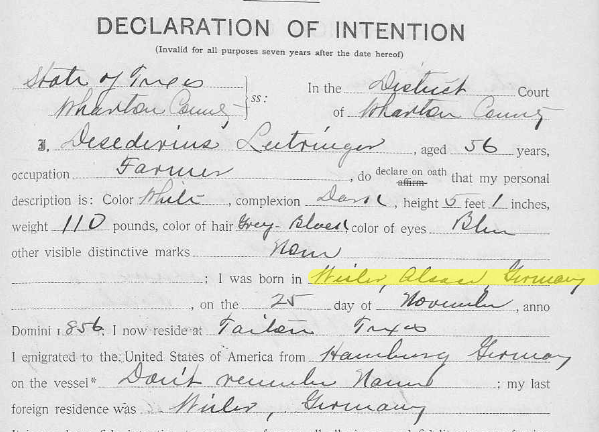 DECLARATION OF INTENTION
(Invalid for all purposes seven years after the date hereof)
State of Texas
Wharton County
ss:
In the District Court
of Wharton County
I, Desederius Leitringer, aged 56 years,
occupation Farmer, do declare on oath affirm that my personal
description is: Color White, complexion Dark, height 5 feet 1 inches,
weight 110 pounds, color of hair Grey-Black color of eyes Blue
other visible distinctive marks None
; I was born in Alsace, Germany
, on the 25 day of November, anno
Domini 1856, I now reside at Texas
I emigrated to the United States of America from Hamburg Germany
on the vessel* Don't remember Name; my last
foreign residence was Germany